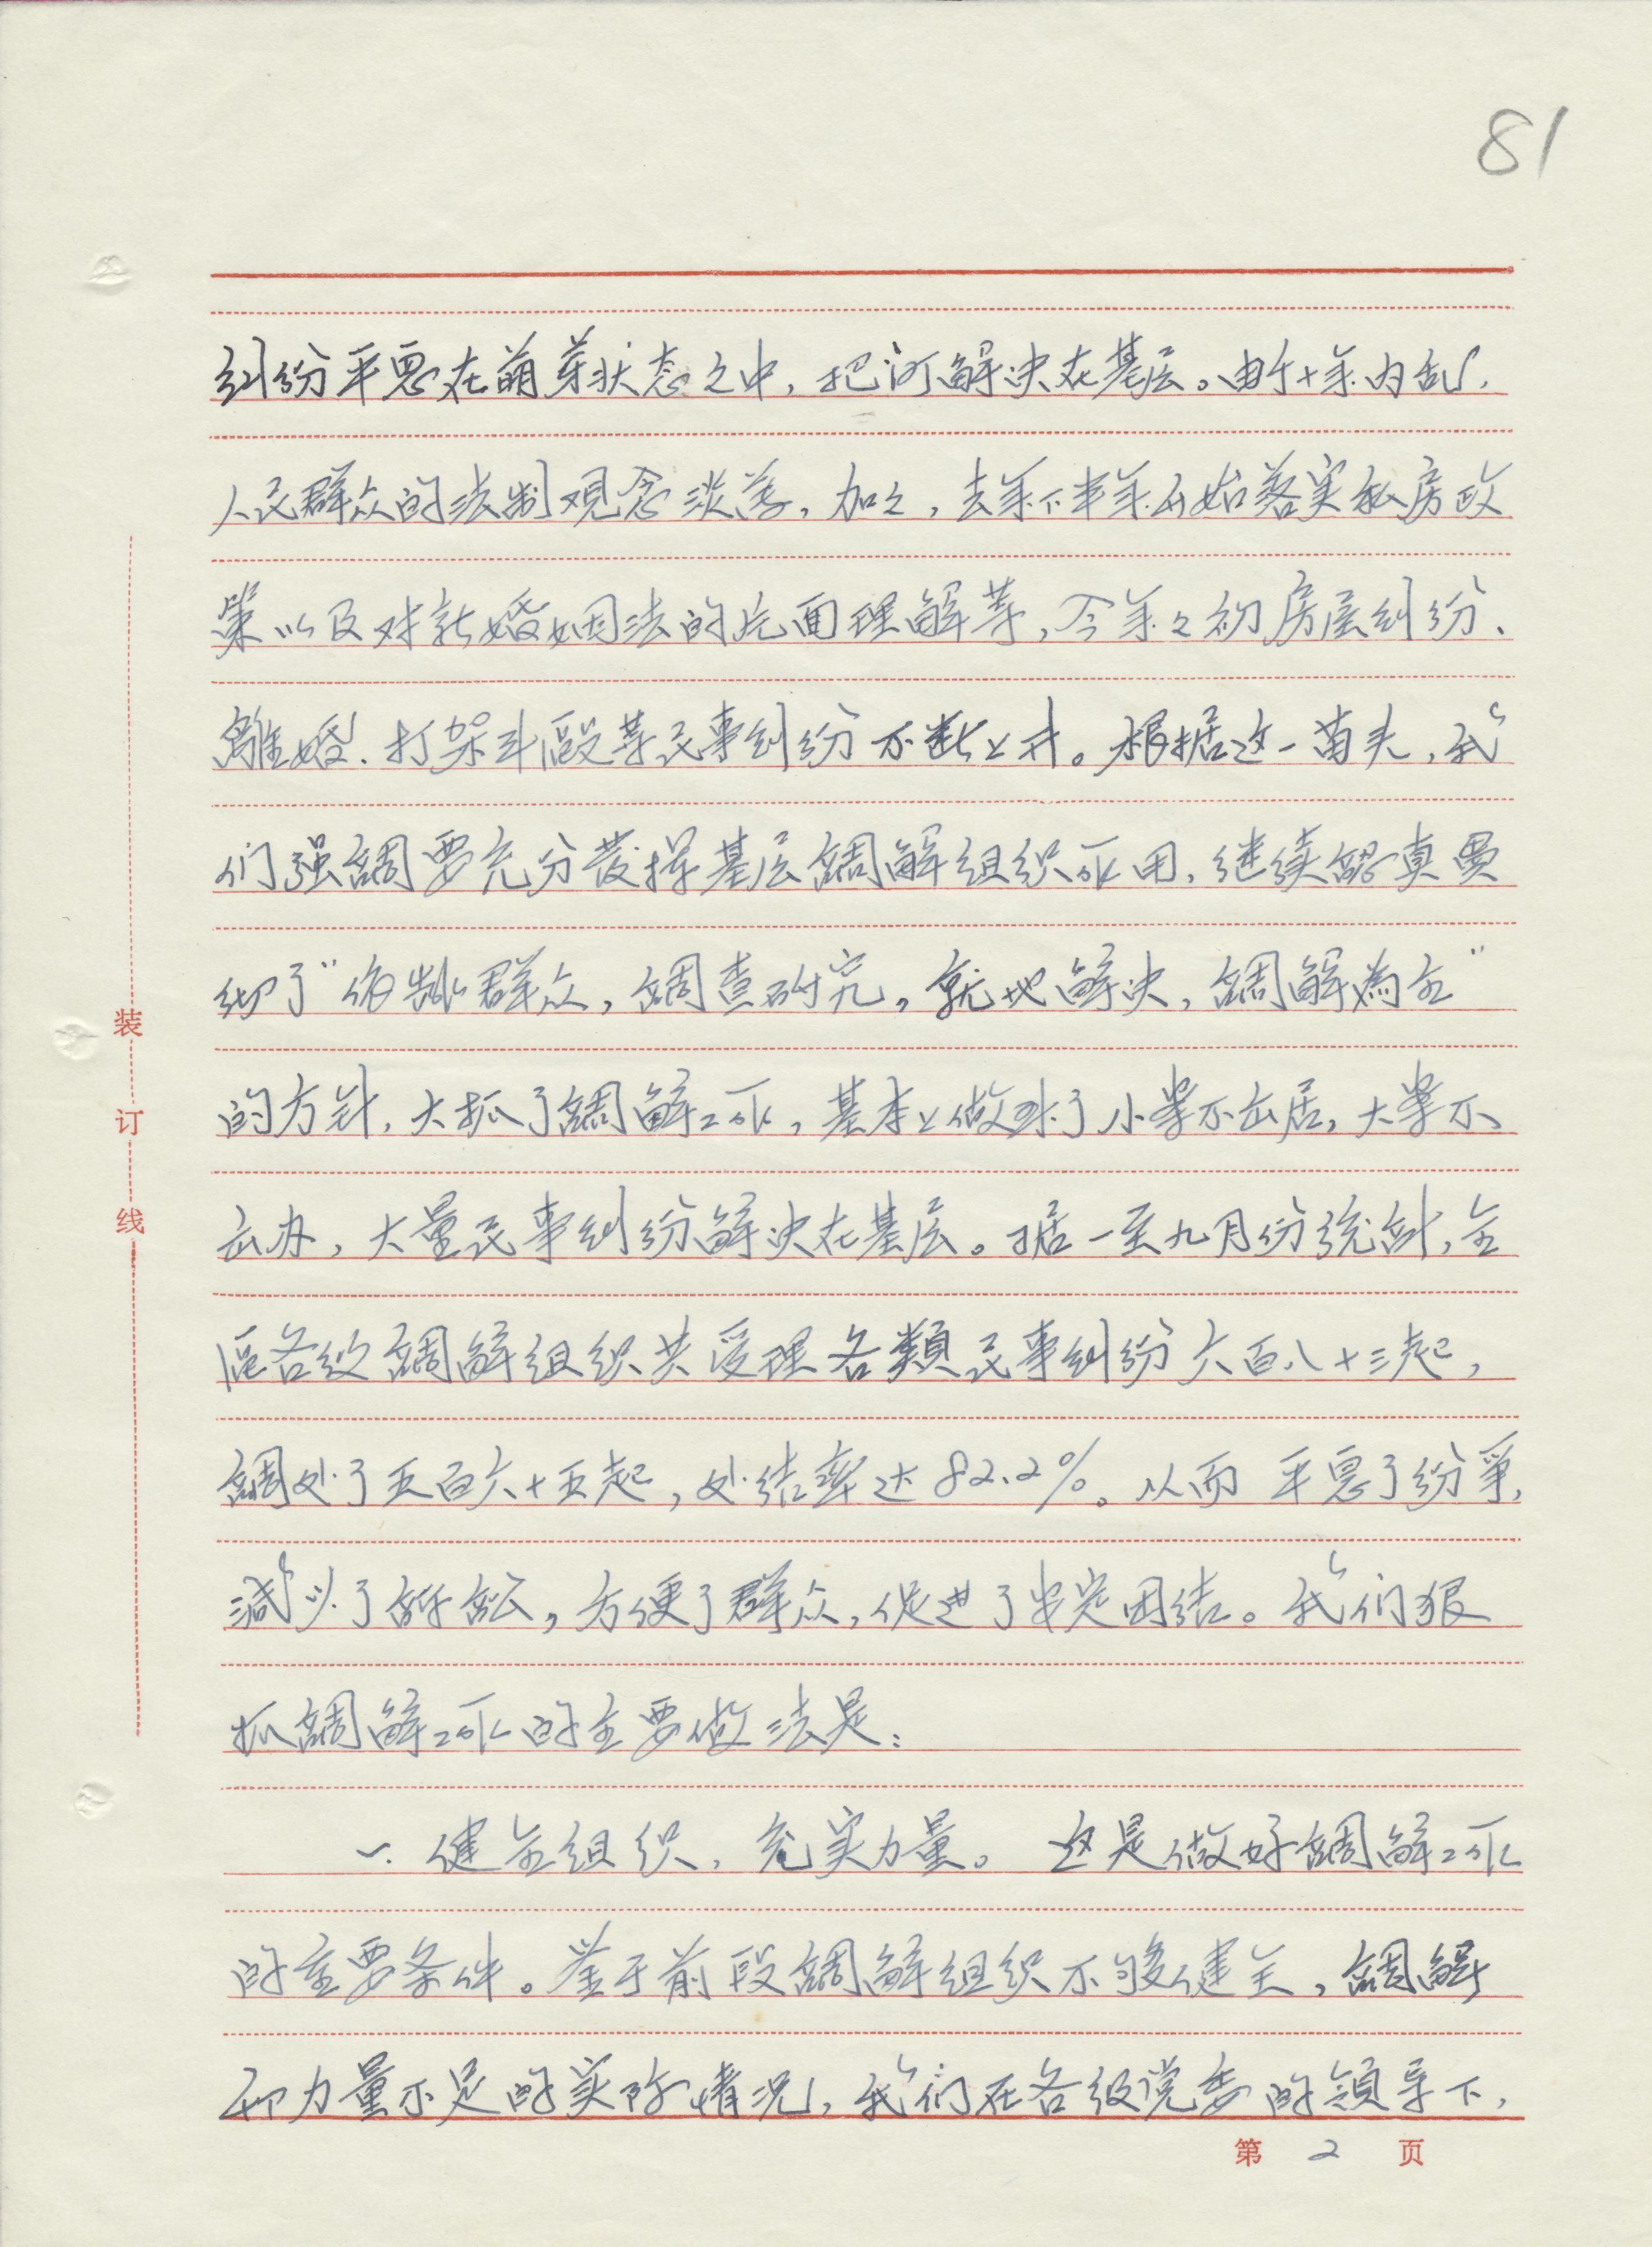 81
纠纷平息在萌芽状态之中，把讼解决在基层。由于十年内乱，
人民群众的法制观念淡薄，加之，去年下半年开始落实私房政
策以及对新婚姻法的片面理解等，今年之初房屋纠纷、
離婚、打架斗殴等民事纠纷不断上升。根据这一苗头，我
们强調要充分发揮基层調解组织作用，继续認真贯
彻了“依靠群众，調查研究，就地解决，調解為主”
的方针，大抓了調解工作，基本上做到了小案不出居，大案不
出办，大量民事纠纷解决在基层。据一至九月份统計，全
区各级調解组织共受理各類民事纠纷六百八十三起，
調处了五百六十五起，处结率达82.2%。从而平息了纷爭，
减少了訴訟，方便了群众，促进了安定团结。我们狠
抓調解工作的主要做法是：
一、健全组织，充实力量。这是做好調解工作
的重要条件。鉴于前段調解组织不够健全，調解
和力量不足的实际情况，我们在各级党委的領导下，
装
订
线
第 2 页